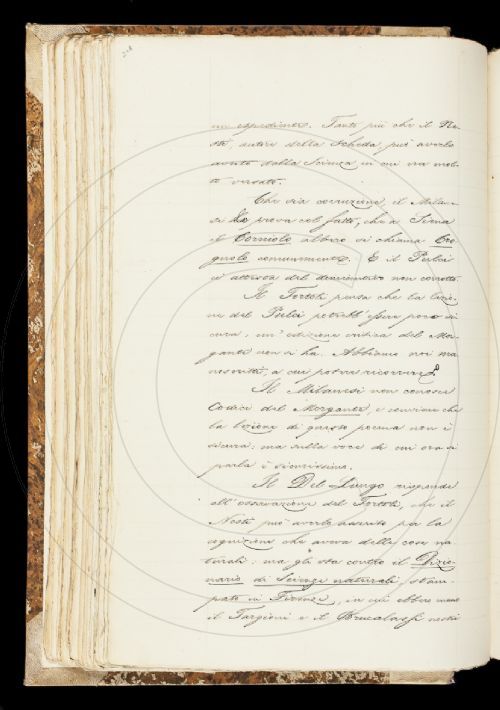 un espediente. Tanto più che il Ne-
sti, autore della scheda, può averlo
avuto dalla Scienza in cui era mol-
to versato.
Che sia corruzione, il Milane-
si lo prova col fatto, che a Siena
il Corniolo albero si chiama Cro-
gnolo comunemente. E il Pulci
ci attesta del
Il Tortoli pensa che la lezio-
ne del Pulci potrebb' essere poco si
cura, un' edizione critica del Mor-
gante non si ha. Abbiamo noi ma
noscritti, a cui potere ricorrere?
Il Milanesi non conosce
Codici del Morgante, e conviene che
la lezione di questo poema non è
sicura, ma sulla voce di cui ora si
parla è sicurissima.
Il Del Lungo risponde
all' osservazione del Tortoli, che il
Nesti può averlo per la
cognizione che aveva delle cose na
turali, ma gli sta contro il Dizio-
nario di Scienze naturali, stam-
pato in Firenze, in cui ebbero mano
il Targioni e il Brucalassi nostri